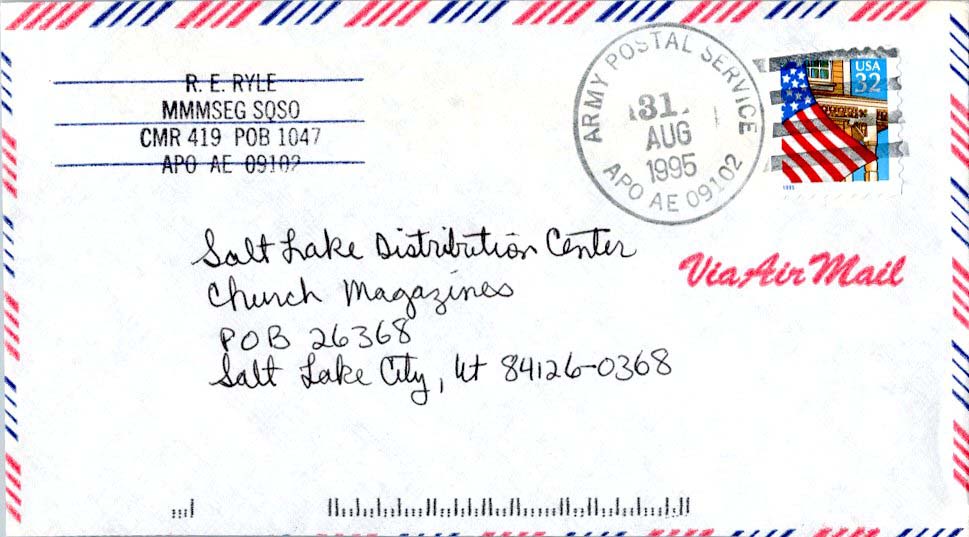 R. E. RYLE
MMMSEG SQSO
CMR 419 POB 1047
APO AE 09102
ARMY POSTAL SERVICE
31
AUG
1995
APO AE 09102
USA
32
1995
Via Air Mail
Salt Lake Distribution Center
Church Magazines
POB 26368
Salt Lake City, Ut 84126-0368